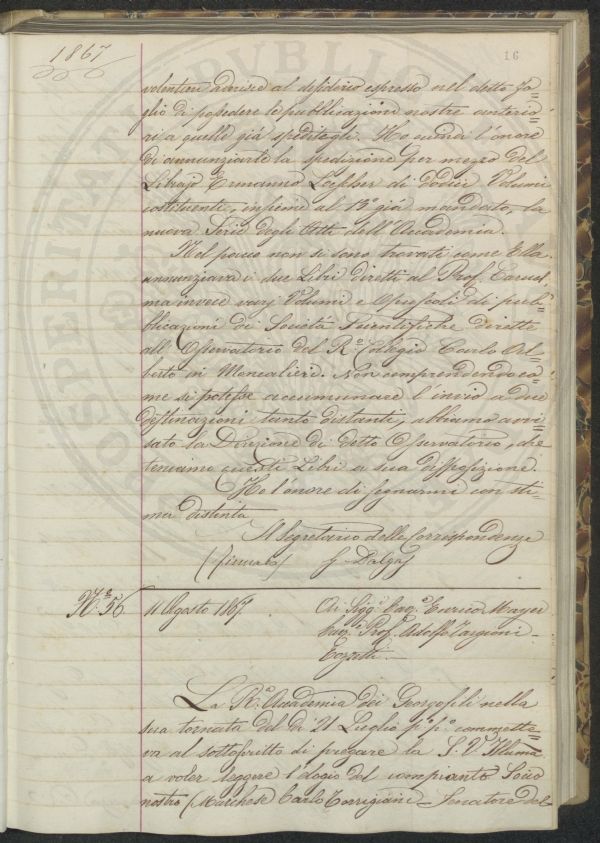 1867
16
volentieri aderisce al desiderio espresso nel detto fo=
glio di possedere le pubblicazioni nostre anterio=
ri a quelle già speditegli. Ho quindi l'onore
di annunziarle la spedizione per mezzo del
Librajo Ermanno Loescher di dodici Volumi
costituente, insieme al 13º già mandato, la
nuova Serie degli Atti dell'Accademia.
Nel pacco non si sono trovati come Ella
annunziava i due Libri diretti al Prof. Caruel,
ma invece varj Volumi e Opuscoli di pub=
blicazioni di Società Scientifiche dirette
all'Osservatorio del Rº Collegio Carlo Al=
berto in Moncalieri. Non comprendendo co=
me si potesse accumunare l'invio a due
destinazioni tanto distanti, abbiamo avvi=
sato la Direzione di detto Osservatorio, che
teniamo questi Libri a sua disposizione.
Ho l'onore di segnarmi con sti=
ma distinta
Il Segretario delle Corrispondenze
(firmato) G. Dalgas
Nº 56
11 Agosto 1867.
Ai Sigg. Cav.e Enrico Mayer
Prof. Adolfo Targioni
Tozzetti.
La Rº Accademia dei Georgofili nella
sua tornata del dì 21 Luglio pº pº commette=
va al sottoscritto di pregare la S. V. Illuma
a voler leggere l'elogio del compianto Socio
nostro (Marchese Carlo Torrigiani Senatore del